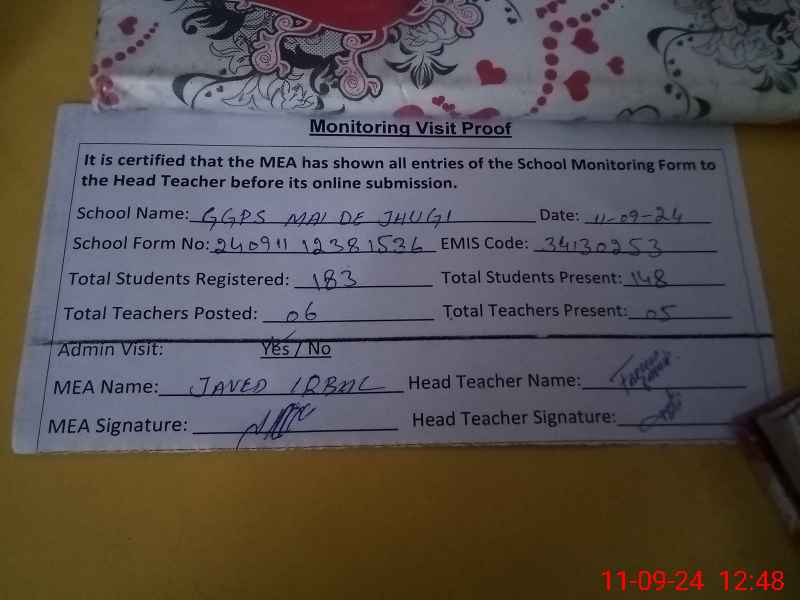 Monitoring Visit Proof
It is certified that the MEA has shown all entries of the School Monitoring Form to
the Head Teacher before its online submission.
School Name: GGPS MAI DE JHUGI Date: 11-09-24
School Form No: 240911 12381536 EMIS Code: 34130253
Total Students Registered: 183 Total Students Present: 148
Total Teachers Posted: 06 Total Teachers Present: 05
Admin Visit: Yes / No
MEA Name: JAVED IQBAL Head Teacher Name:
MEA Signature: Head Teacher Signature:
11-09-24 12:48